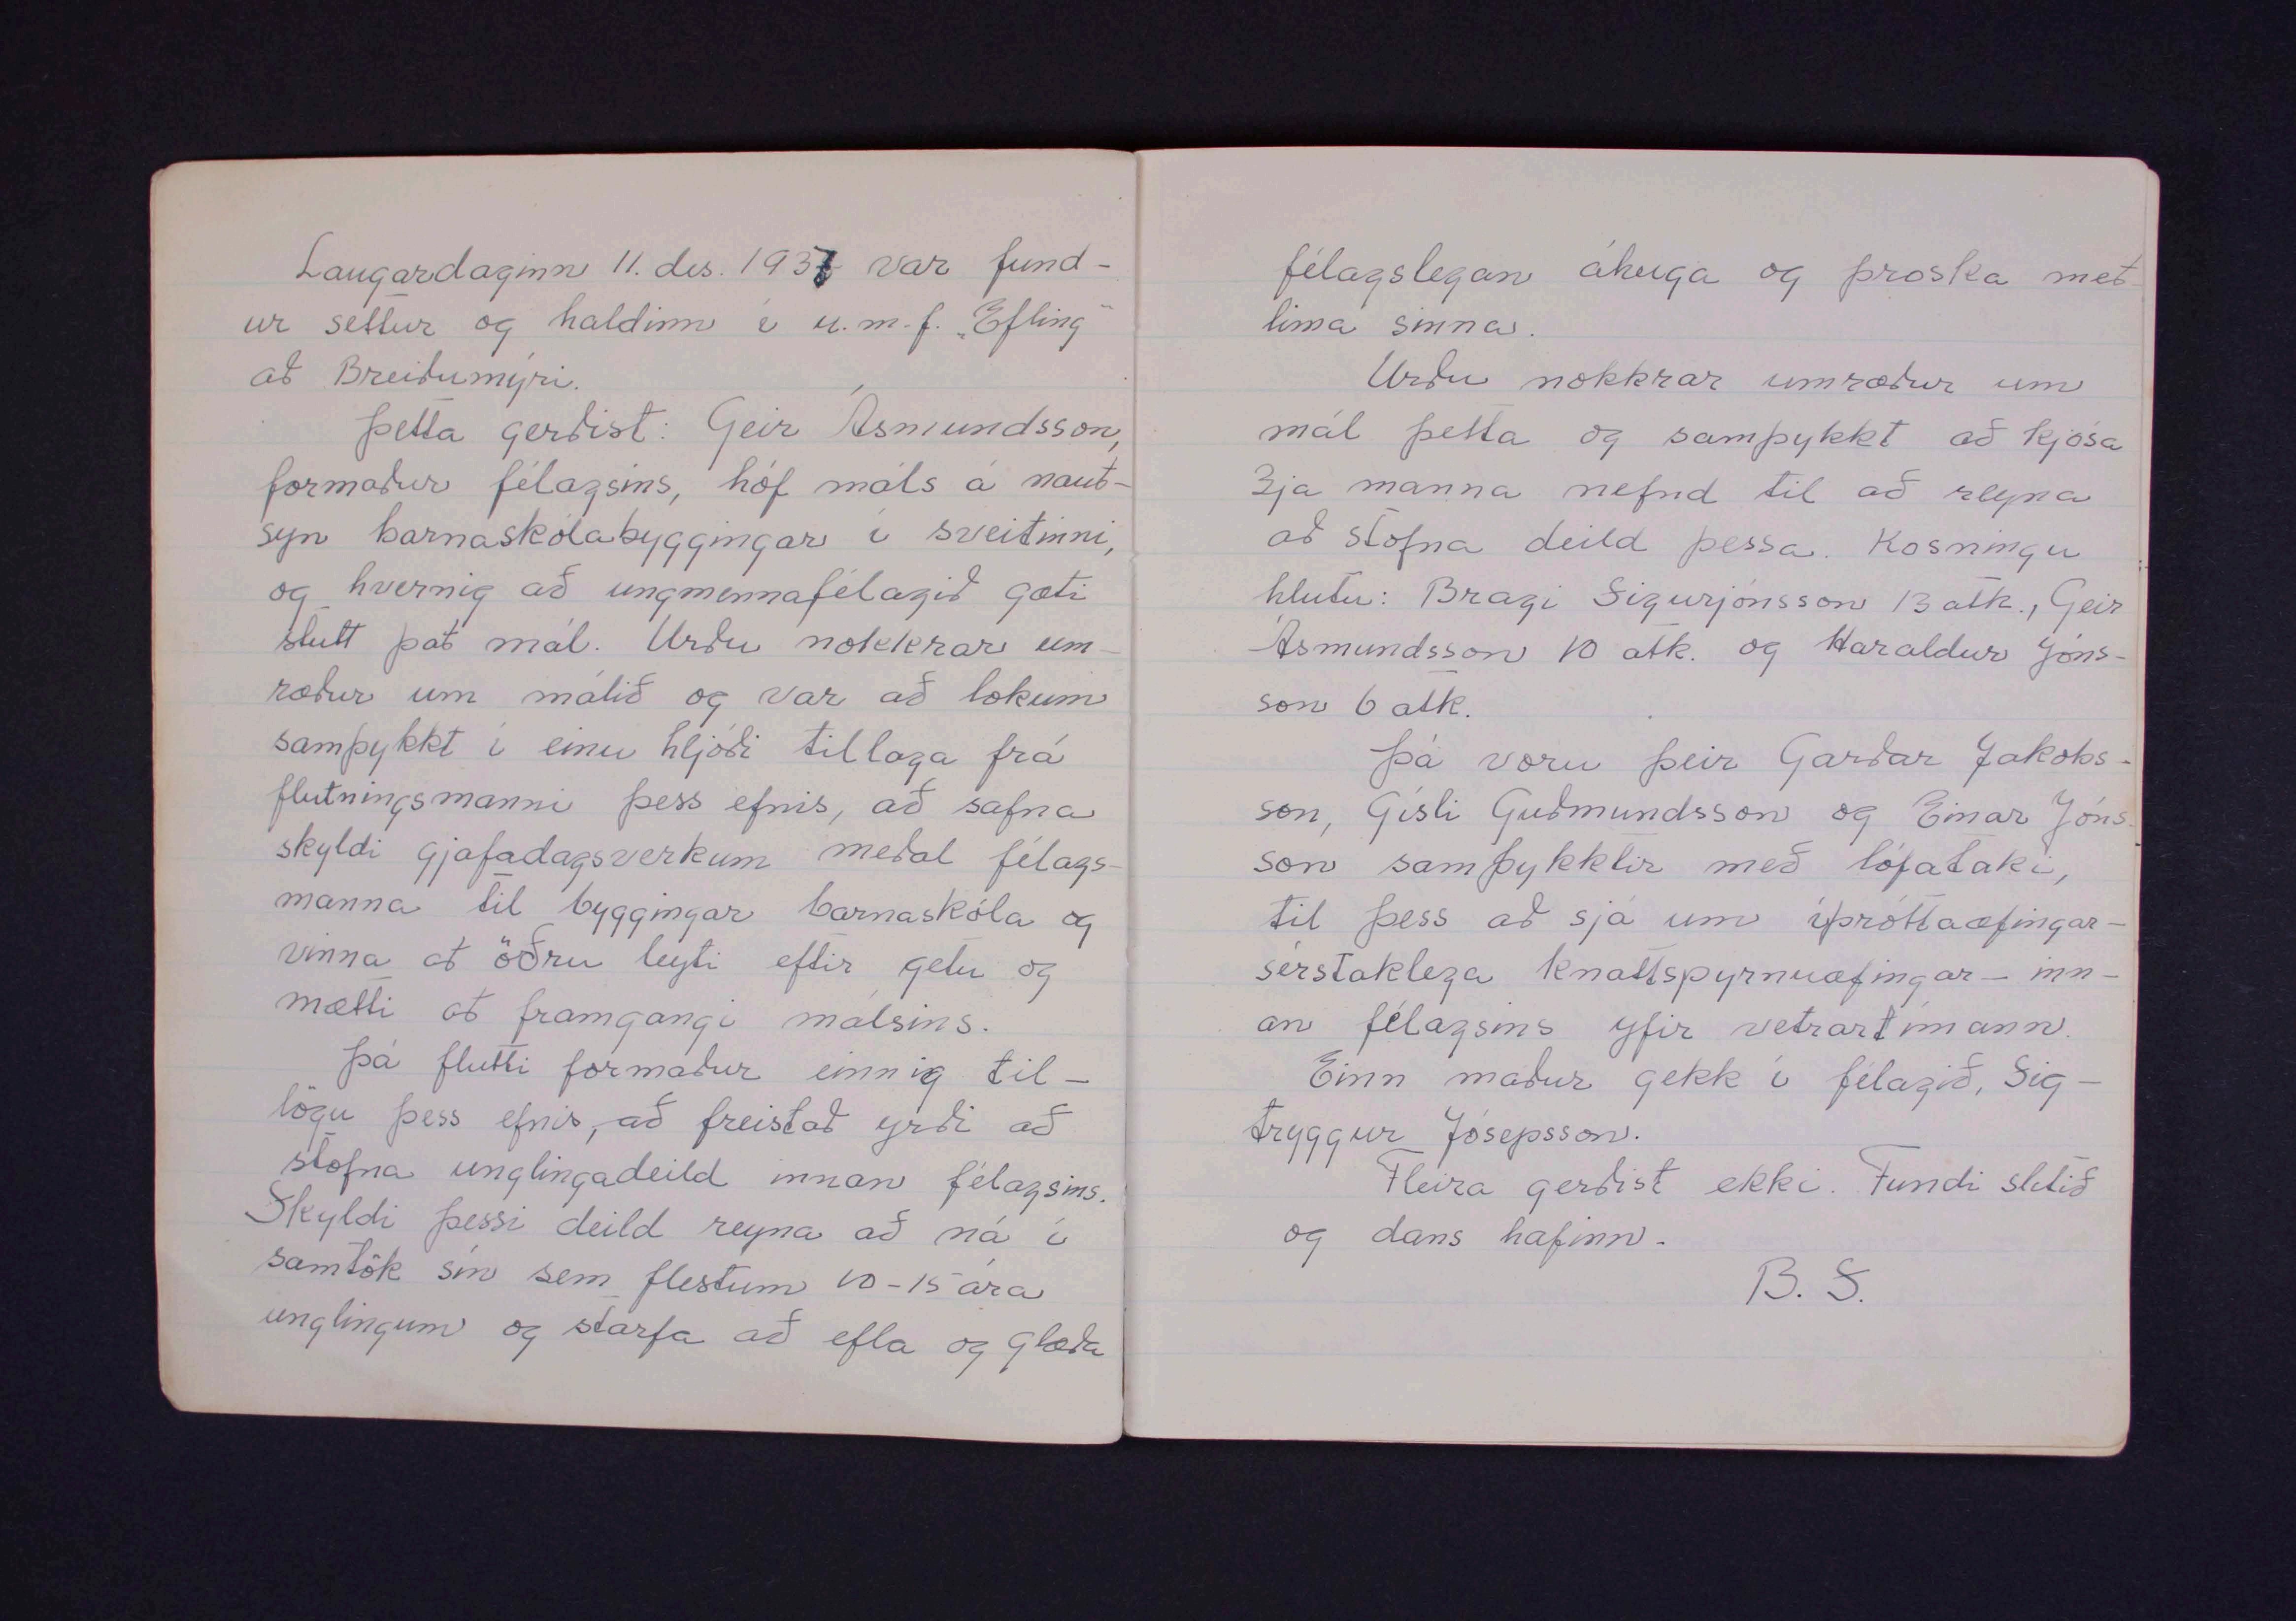 Laugardaginn 11. des. 1937 var fund-
ur settur og haldinn í u.m.f. „Efling“
að Breiðumýri.
Þetta gerðist: Geir Ásmundsson,
formaður félagsins, hóf máls á nauð-
syn barnaskólabyggingar í sveitinni,
og hvernig að ungmennafélagið gæti
stutt það mál. Urðu nokkrar um-
ræður um málið og var að lokum
samþykkt í einu hljóði tillaga frá
flutningsmanni þess efnis, að safna
skyldi gjafadagsverkum meðal félags-
manna til byggingar barnaskóla og
vinna að öðru leyti eftir getu og
mætti að framgangi málsins.
Þá flutti formaður einnig til-
lögu þess efnis, að freistað yrði að
stofna unglingadeild innan félagsins.
Skyldi þessi deild reyna að ná í
samtök sín sem flestum 10-15 ára
unglingum og starfa að efla og glæða
félagslegan áhuga og þroska með-
lima sinna.
Urðu nokkrar umræður um
mál þetta og samþykkt að kjósa
3ja manna nefnd til að reyna
að stofna deild þessa. Kosningu
hlutu: Bragi Sigurjónsson 13 atk., Geir
Ásmundsson 10 atk. og Haraldur Jóns-
son 6 atk.
Þá voru þeir Garðar Jakobs-
son, Gísli Guðmundsson og Einar Jóns-
son samþykktir með lófataki,
til þess að sjá um íþróttaæfingar -
sérstaklega knattspyrnuæfingar - inn-
an félagsins yfir vetrartímann.
Einn maður gekk í félagið, Sig-
tryggur Jósepsson.
Fleira gerðist ekki. Fundi slitið
og dans hafinn.
B. S.